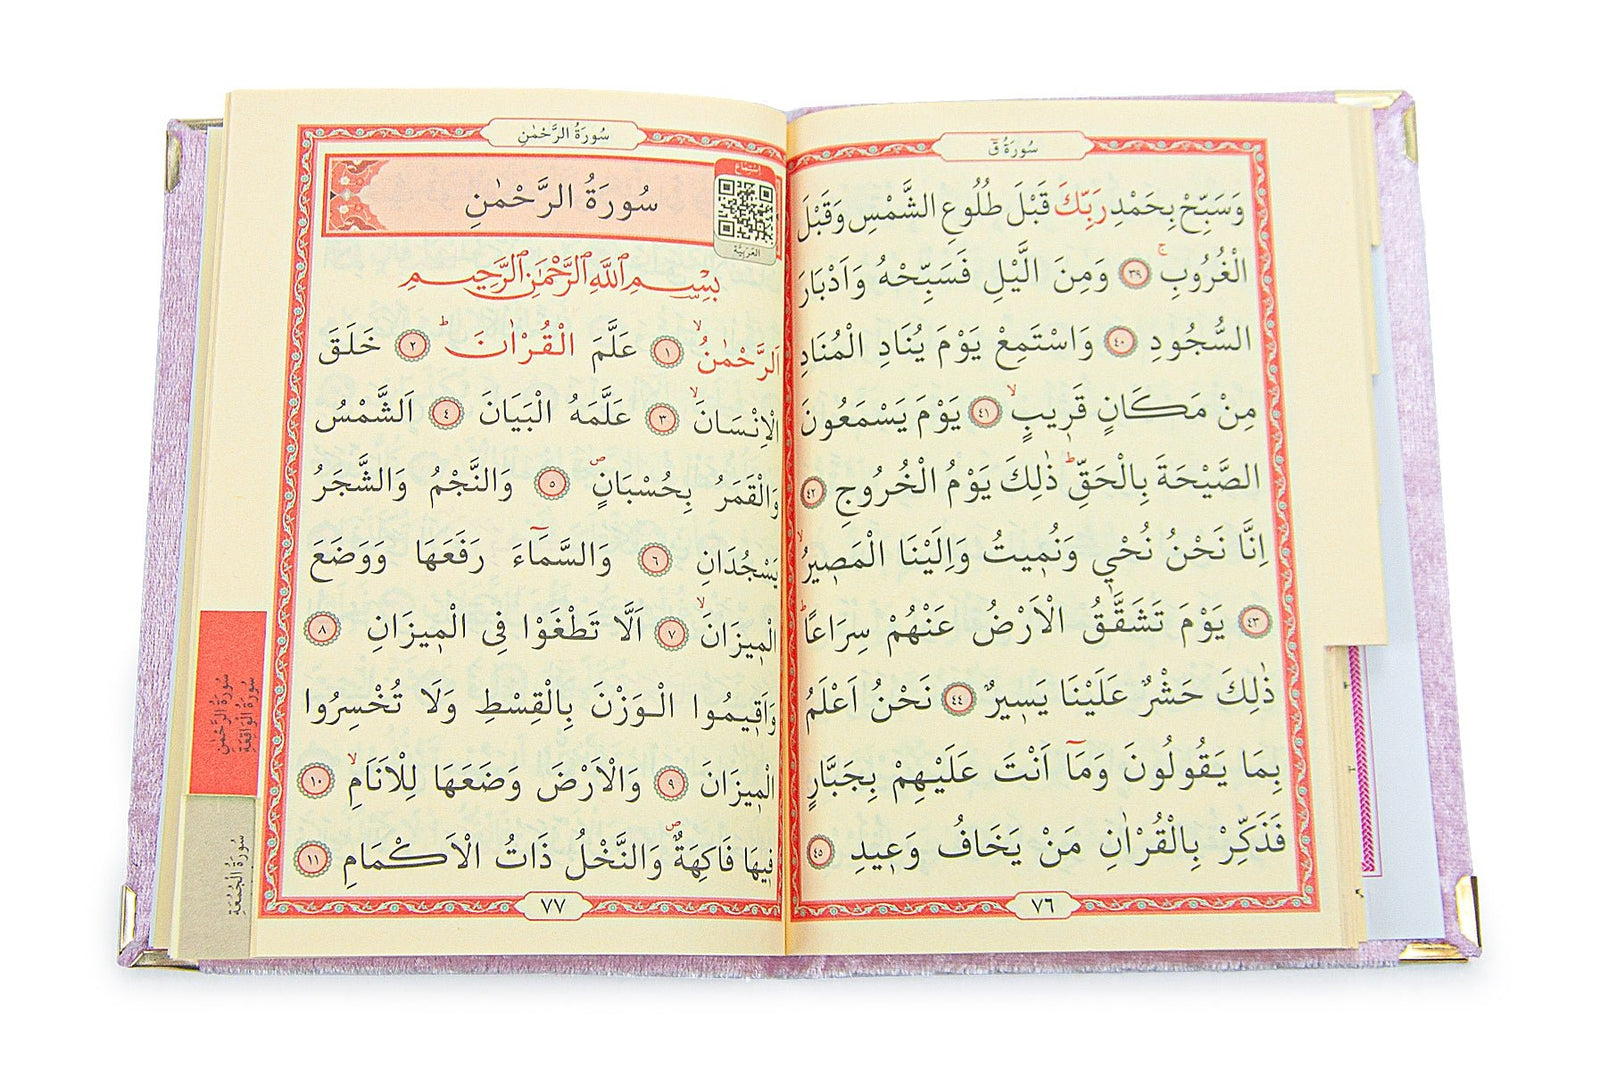 سُورَةُ قٓ
وَسَبِّحْ بِحَمْدِ رَبِّكَ قَبْلَ طُلُوعِ الشَّمْسِ وَقَبْلَ
الْغُرُوبِۚ ﴿٣٩﴾ وَمِنَ الَّيْلِ فَسَبِّحْهُ وَاَدْبَارَ
السُّجُودِ ﴿٤٠﴾ وَاسْتَمِعْ يَوْمَ يُنَادِ الْمُنَادِ
مِنْ مَكَانٍ قَرٖيبٍۙ ﴿٤١﴾ يَوْمَ يَسْمَعُونَ
الصَّيْحَةَ بِالْحَقِّؕ ذٰلِكَ يَوْمُ الْخُرُوجِ ﴿٤٢﴾
اِنَّا نَحْنُ نُحْيٖ وَنُمٖيتُ وَاِلَيْنَا الْمَصٖيرُۙ
﴿٤٣﴾ يَوْمَ تَشَقَّقُ الْاَرْضُ عَنْهُمْ سِرَاعًاؕ
ذٰلِكَ حَشْرٌ عَلَيْنَا يَسٖيرٌ ﴿٤٤﴾ نَحْنُ اَعْلَمُ
بِمَا يَقُولُونَ وَمَٓا اَنْتَ عَلَيْهِمْ بِجَبَّارٍ
فَذَكِّرْ بِالْقُرْاٰنِ مَنْ يَخَافُ وَعٖيدِ ﴿٤٥﴾
٧٦
سُورَةُ الرَّحْمٰنِ
سُورَةُ الرَّحْمٰنِ
إستماع
العَرَبِيَّة
بِسْمِ اللّٰهِ الرَّحْمٰنِ الرَّحِيمِ
اَلرَّحْمٰنُۙ ﴿١﴾ عَلَّمَ الْقُرْاٰنَؕ ﴿٢﴾ خَلَقَ
الْاِنْسَانَۙ ﴿٣﴾ عَلَّمَهُ الْبَيَانَ ﴿٤﴾ اَلشَّمْسُ
وَالْقَمَرُ بِحُسْبَانٍۖ ﴿٥﴾ وَالنَّجْمُ وَالشَّجَرُ
يَسْجُدَانِ ﴿٦﴾ وَالسَّمَٓاءَ رَفَعَهَا وَوَضَعَ
الْمٖيزَانَۙ ﴿٧﴾ اَلَّا تَطْغَوْا فِي الْمٖيزَانِ ﴿٨﴾
وَاَقٖيمُوا الْوَزْنَ بِالْقِسْطِ وَلَا تُخْسِرُوا
الْمٖيزَانَ ﴿٩﴾ وَالْاَرْضَ وَضَعَهَا لِلْاَنَامِۙ ﴿١٠﴾
فٖيهَا فَاكِهَةٌۖ وَالنَّخْلُ ذَاتُ الْاَكْمَامِ ﴿١١﴾
٧٧
سُورَةُ الرَّحْمٰنِ
سُورَةُ الْوَاقِعَةِ
سُورَةُ الْجُمُعَةِ